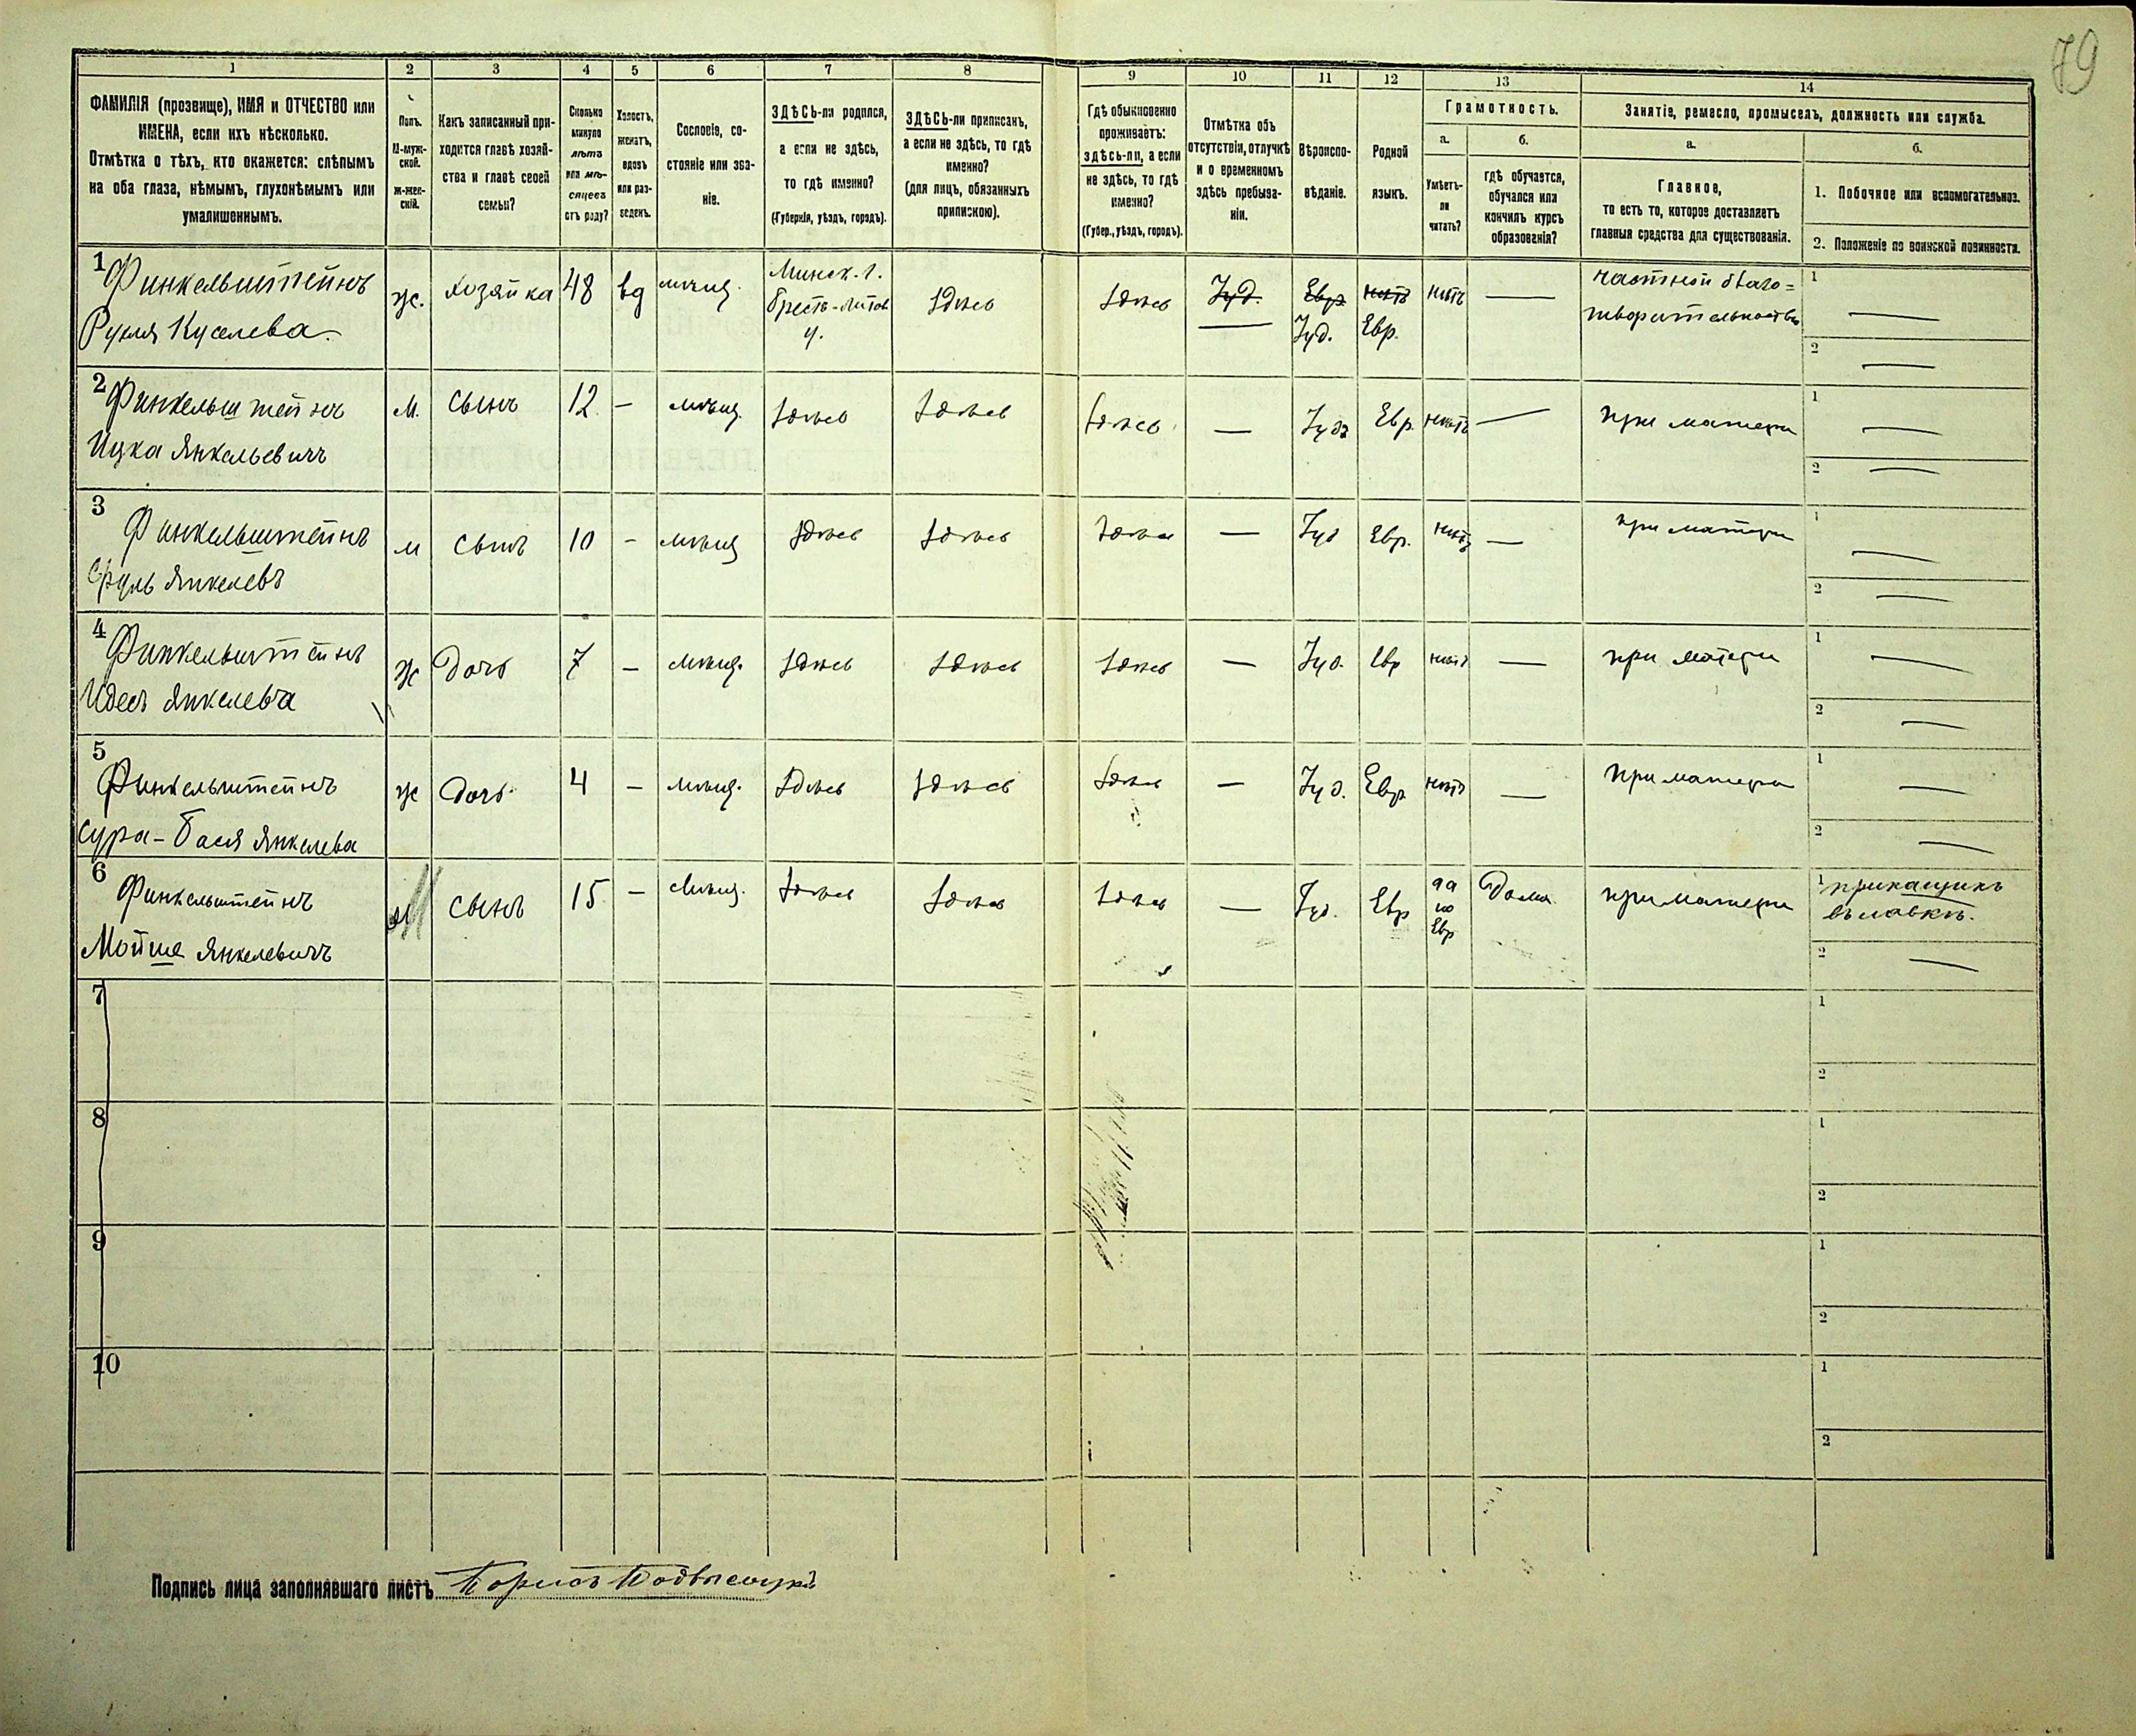 79
1 2 3 4 5 6 7 8 9 10 11 12 13 14
ФАМИЛІЯ (прозвище), ИМЯ и ОТЧЕСТВО или
ИМЕНА, если ихъ нѣсколько.
Отмѣтка о тѣхъ, кто окажется: слѣпымъ
на оба глаза, нѣмымъ, глухонѣмымъ или
умалишеннымъ.
Полъ.
М-муж-
ской.
ж-жен-
скій.
Какъ записанный при-
ходится главѣ хозяй-
ства и главѣ своей
семьи?
Сколько
минуло
лѣтъ
или мѣ-
сяцевъ
отъ роду?
Холостъ,
женатъ,
вдовъ
или раз-
веденъ.
Сословіе, со-
стояніе или зва-
ніе.
ЗДѢСЬ-ли родился,
а если не здѣсь,
то гдѣ именно?
(Губернія, уѣздъ, городъ).
ЗДѢСЬ-ли приписанъ,
а если не здѣсь, то гдѣ
именно?
(для лицъ, обязанныхъ
припискою).
Гдѣ обыкновенно
проживаетъ:
здѣсь-ли, а если
не здѣсь, то гдѣ
именно?
(Губер., уѣздъ, городъ).
Отмѣтка объ
отсутствіи, отлучкѣ
и о временномъ
здѣсь пребыва-
ніи.
Вѣроиспо-
вѣданіе.
Родной
языкъ.
Грамотность.
а.
Умѣетъ-
ли
читать?
б.
гдѣ обучается,
обучался или
кончилъ курсъ
образованія?
Занятіе, ремесло, промыселъ, должность или служба.
а.
Главное,
то есть то, которое доставляетъ
главныя средства для существованія.
б.
1. Побочное или вспомогательное.
2. Положеніе по воинской повинности.
1 Финкельштейнъ
Рухля Куселева
ж. хозяйка 48 вд мѣщ.
Минск. г.
Брестъ-Литов
у.
здѣсь здѣсь Іуд. Евр. нѣтъ нѣтъ —
Іуд. Евр.
частной благо=
творительностью
1 —
2 —
2 Финкельштейнъ
Ицка Янкельевичъ
М. сынъ 12 — мѣщ. здѣсь здѣсь здѣсь — Іуд Евр. нѣтъ — при матери
1 —
2 —
3 Финкельштейнъ
Сруль Янкелевъ
м сынъ 10 — мѣщ здѣсь здѣсь здѣсь — Іуд Евр. нѣтъ — при матери
1 —
2 —
4 Финкельштейнъ
Идесъ Янкелева
ж дочь 7 — мѣщ. здѣсь здѣсь здѣсь — Іуд. Евр нѣтъ — при матери
1 —
2 —
5 Финкельштейнъ
Сура-Бася Янкелева
ж дочь 4 — мѣщ. здѣсь здѣсь здѣсь — Іуд. Евр. нѣтъ — при матери
1 —
2 —
6 Финкельштейнъ
Мойше Янкелевичъ
м сынъ 15 — мѣщ. здѣсь здѣсь здѣсь — Іуд. Евр
да
по
Евр
Дома. при матери
1 прикащикъ
въ лавкѣ.
2 —
7
1
2
8
1
2
9
1
2
10
1
2
Подпись лица заполнявшаго листъ